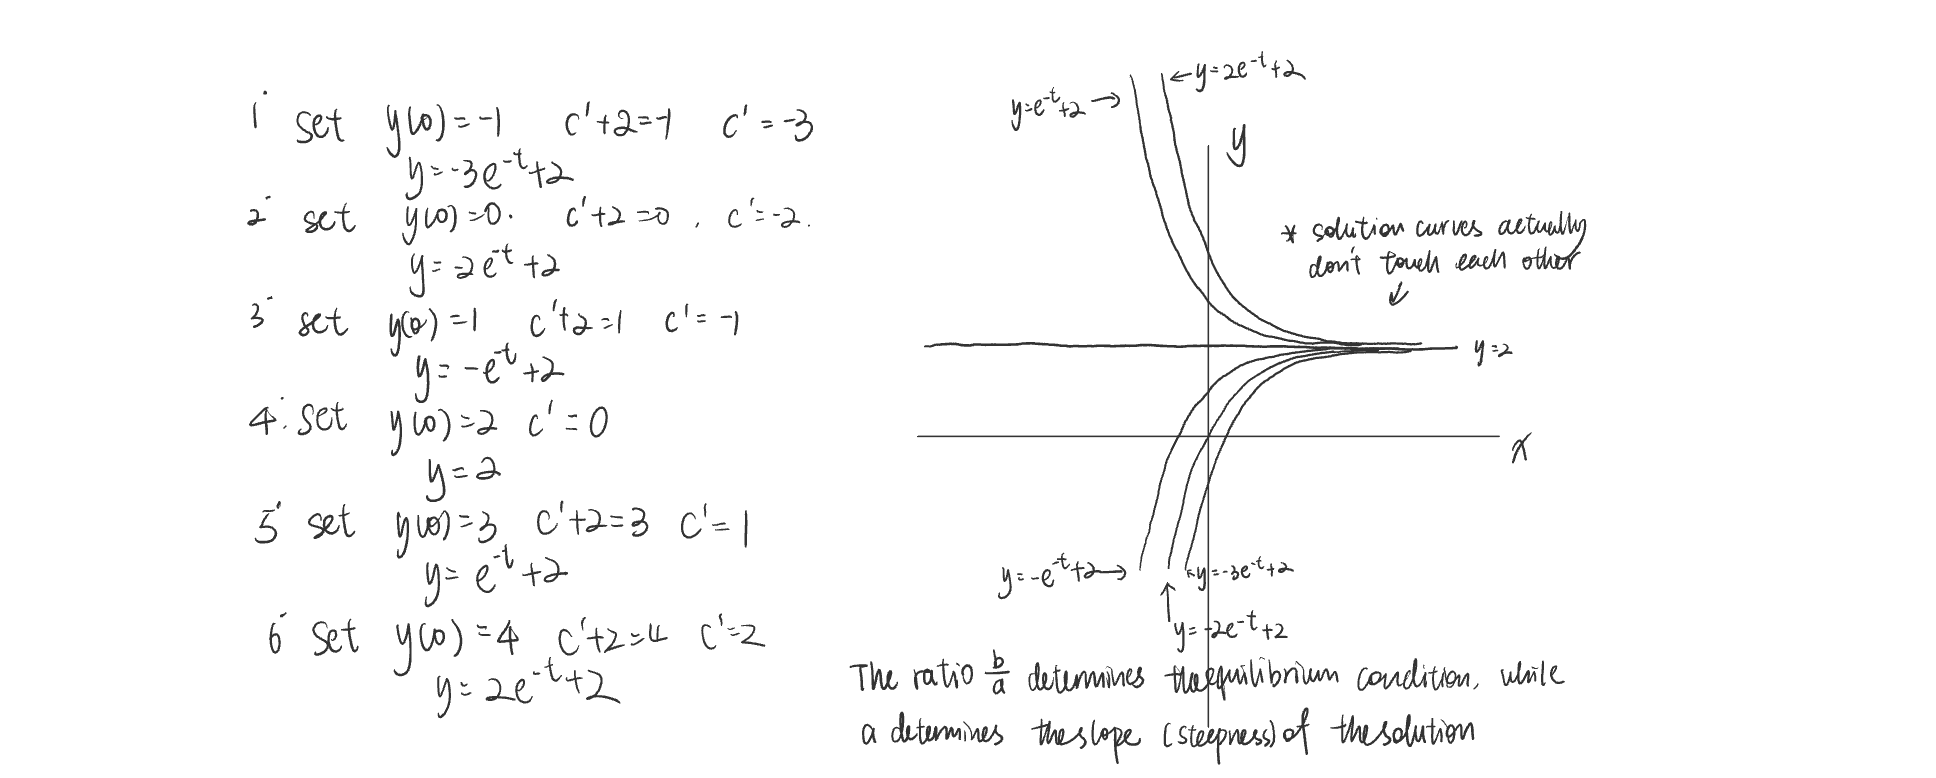 1° set y(0)=-1 c'+2=-1 c'=-3
y=-3e^-t+2
2° set y(0)=0. c'+2=0, c'=-2.
y=-2e^-t+2
3° set y(0)=1 c'+2=1 c'=-1
y=-e^-t+2
4°. set y(0)=2 c'=0
y=2
5° set y(0)=3 c'+2=3 c'=1
y=e^-t+2
6° set y(0)=4 c'+2=4 c'=2
y=2e^-t+2
←y=2e^-t+2
y=e^-t+2→
y
* solution curves actually
don't touch each other
↙
y=2
x
y=-e^-t+2→
↖y=-3e^-t+2
↑
y=-2e^-t+2
The ratio b/a determines the equilibrium condition, while
a determines the slope (steepness) of the solution